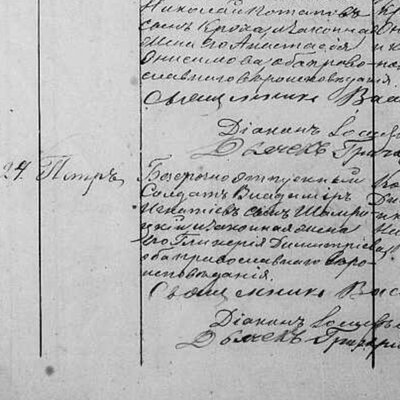 Николай Потаповъ
сынъ Кроха, и законная
жена его Анастасія
Онисимова, оба право-
славнаго вѣроисповѣданія
Священникъ Вас
Діаконъ
Дьячекъ Григор
24. Петръ, Безсрочноотпускный
Солдатъ Владиміръ
Игнатіевъ сынъ
и законная жена
его Гликерія Димитріева
оба православнаго вѣро-
исповѣданія.
Священникъ Вас
Діаконъ
Дьячекъ Григори